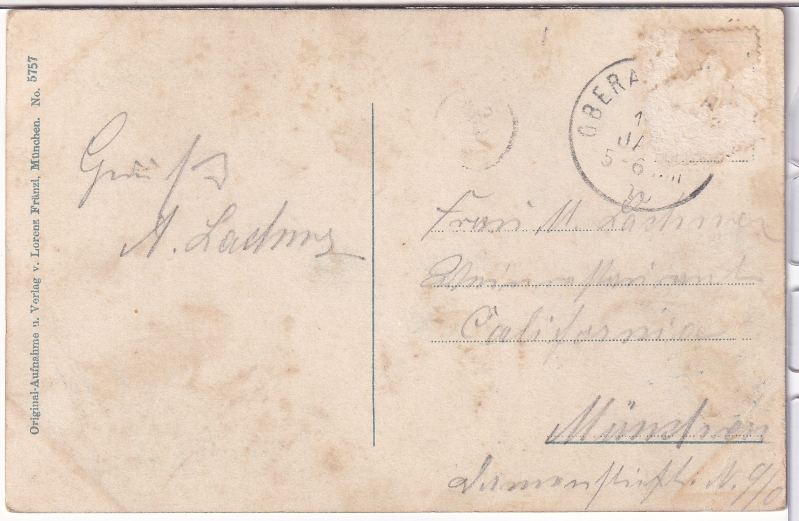 Original-Aufnahme u. Verlag v. Lorenz Fränzl, München. No. 5757
Gruß
A. Lachner
OBERA
1
JA
5-6
22
Frau M. Lachner
Weinrestaurant
California
München
Damenstiftstr. N. 9/0